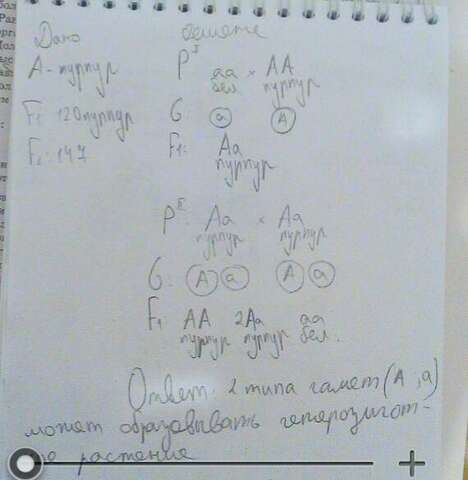 Дано Решение
A - пурпур
P I aa × AA
бел. пурпур
F1 120 пурпур
G: a A
F2: 147
F1: Aa
пурпур
P II: Aa × Aa
пурпур пурпур
G: A a A a
F1 AA 2Aa aa
пурпур пурпур бел.
Ответ: 2 типа гамет (A, a)
может образовывать гетерозигот-
ое растение